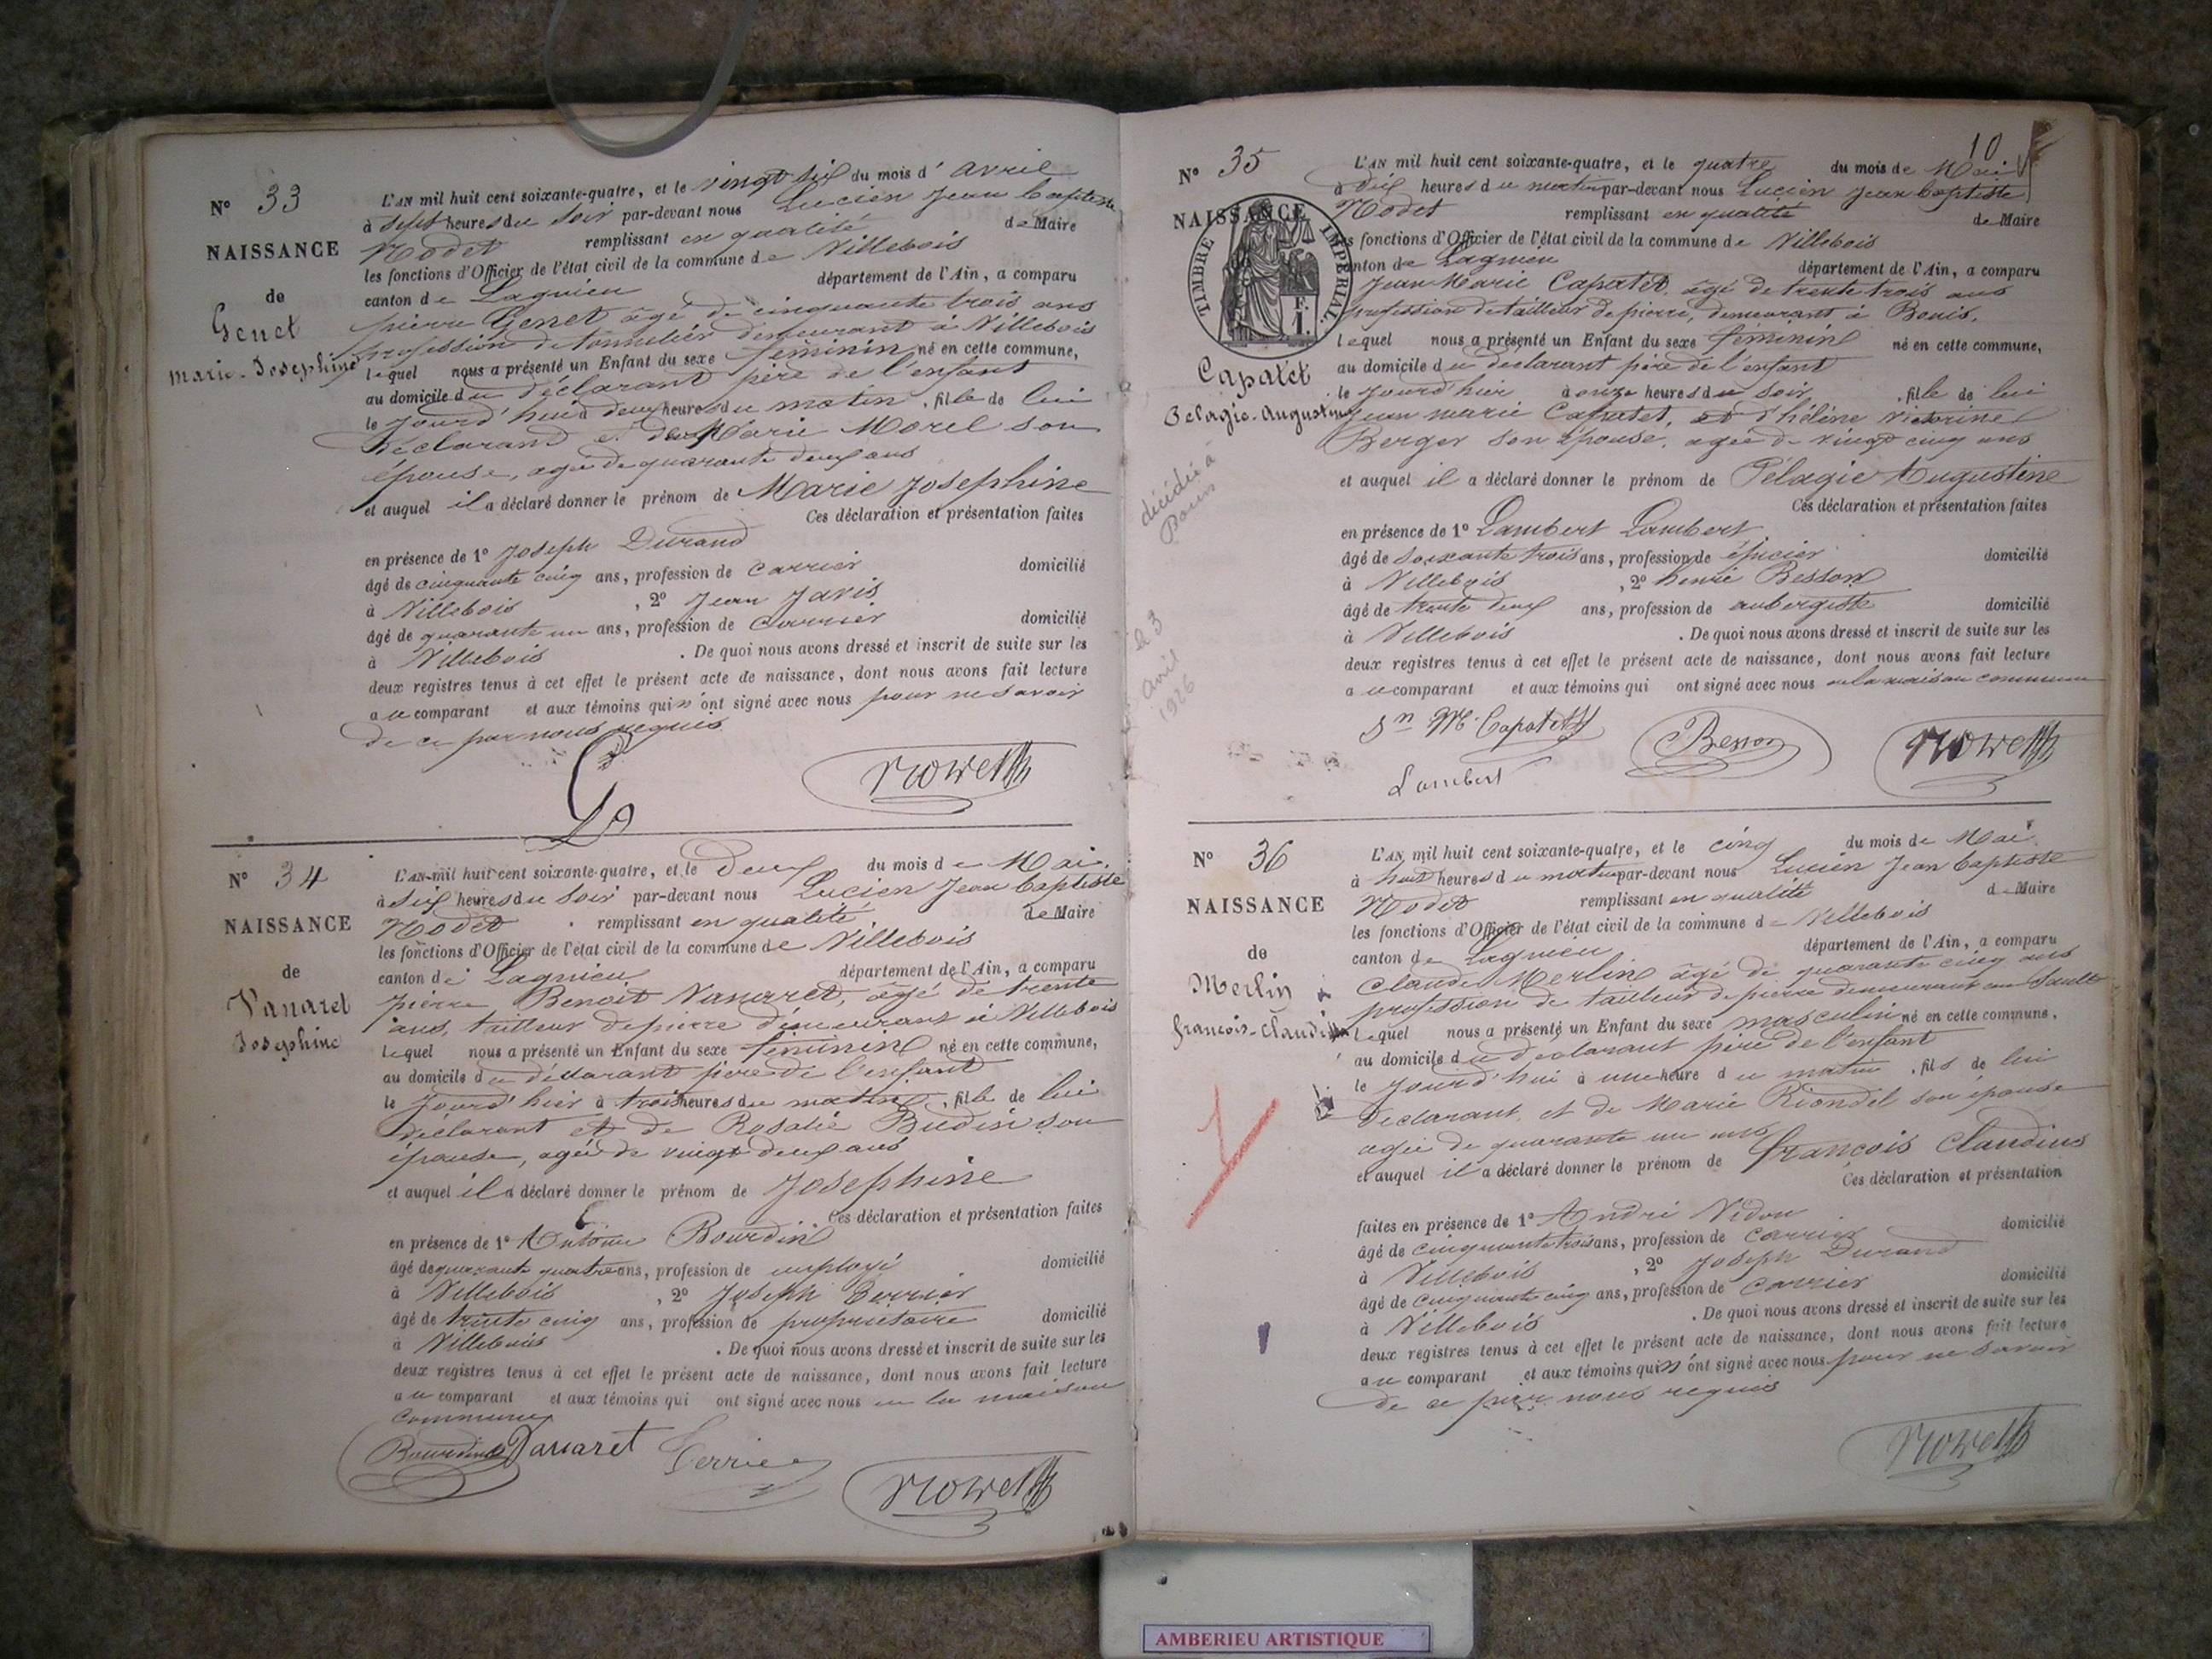 N° 33
NAISSANCE
de
Genet
Marie-Josephine
L'AN mil huit cent soixante-quatre, et le vingt six du mois d' avril
à sept heures du soir par-devant nous Lucien Jean Baptiste
Rodet remplissant en qualité de Maire
les fonctions d'Officier de l'état civil de la commune de Villebois
canton de Lagnieu département de l'Ain, a comparu
pierre Genet âgé de cinquante trois ans
profession de tonnelier demeurant à Villebois
lequel nous a présenté un Enfant du sexe féminin né en cette commune,
au domicile du déclarant père de l'enfant
le jourd'hui à deux heures du matin, fille de lui
déclarant et de Marie Morel son
épouse, agée de quarante deux ans
et auquel il a déclaré donner le prénom de Marie Josephine
Ces déclaration et présentation faites
en présence de 1° Joseph Durand
âgé de cinquante cinq ans, profession de carrier domicilié
à Villebois, 2° Jean Javis
âgé de quarante un ans, profession de carrier domicilié
à Villebois. De quoi nous avons dressé et inscrit de suite sur les
deux registres tenus à cet effet le présent acte de naissance, dont nous avons fait lecture
au comparant et aux témoins qui n'ont signé avec nous pour ne savoir
de ce par nous requis
N° 34
NAISSANCE
de
Vanaret
Josephine
L'AN mil huit cent soixante-quatre, et le deux du mois de Mai
à six heures du soir par-devant nous Lucien Jean baptiste
Rodet remplissant en qualité de Maire
les fonctions d'Officier de l'état civil de la commune de Villebois
canton de Lagnieu département de l'Ain, a comparu
pierre Benoit Vanaret, âgé de trente
ans, tailleur de pierre demeurant à Villebois
lequel nous a présenté un Enfant du sexe féminin né en cette commune,
au domicile du déclarant père de l'enfant
le jourd'hier à trois heures du matin, fille de lui
declarant et de Rosalie Budin son
épouse, agée de vingt deux ans
et auquel il a déclaré donner le prénom de Josephine
Ces déclaration et présentation faites
en présence de 1° Antoine Bourdin
âgé de quarante quatre ans, profession de employé domicilié
à Villebois, 2° Joseph Perrier
âgé de trente cinq ans, profession de propriétaire domicilié
à Villebois. De quoi nous avons dressé et inscrit de suite sur les
deux registres tenus à cet effet le présent acte de naissance, dont nous avons fait lecture
au comparant et aux témoins qui ont signé avec nous en la maison
commune
Bourdin Vanaret Perrier
10
N° 35
NAISSANCE
TIMBRE IMPÉRIAL
F.
1.
Capatet
Pelagie-Augustine
décédée à
23
avril
1926
L'AN mil huit cent soixante-quatre, et le quatre du mois de Mai
à dix heures du matin par-devant nous Lucien Jean baptiste
Rodet remplissant en qualité de Maire
les fonctions d'Officier de l'état civil de la commune de Villebois
canton de Lagnieu département de l'Ain, a comparu
Jean Marie Capatet, âgé de trente trois ans
profession de tailleur de pierre, demeurant à Bouis,
lequel nous a présenté un Enfant du sexe féminin né en cette commune,
au domicile du déclarant père de l'enfant
le jourd'hier à onze heures du soir, fille de lui
Jean marie Capatet, et d'hélène Victorine
Berger son épouse, agée de vingt cinq ans
et auquel il a déclaré donner le prénom de Pélagie Augustine
Ces déclaration et présentation faites
en présence de 1° Lambert Lambert
âgé de soixante trois ans, profession de épicier domicilié
à Villebois, 2° henri Besson
âgé de trente deux ans, profession de aubergiste domicilié
à Villebois. De quoi nous avons dressé et inscrit de suite sur les
deux registres tenus à cet effet le présent acte de naissance, dont nous avons fait lecture
au comparant et aux témoins qui ont signé avec nous en la maison commune
Jn M. Capatet Besson
Lambert
N° 36
NAISSANCE
de
Merlin
françois-Claudius
L'AN mil huit cent soixante-quatre, et le cinq du mois de Mai
à huit heures du matin par-devant nous Lucien Jean baptiste
Rodet remplissant en qualité de Maire
les fonctions d'Officier de l'état civil de la commune de Villebois
canton de Lagnieu département de l'Ain, a comparu
Claude Merlin âgé de quarante cinq ans
profession de tailleur de pierre demeurant au Sault
lequel nous a présenté un Enfant du sexe masculin né en cette commune,
au domicile du declarant père de l'enfant
le jourd'hui à une heure du matin, fils de lui
declarant, et de Marie Riondel son épouse
agée de quarante un ans
et auquel il a déclaré donner le prénom de françois Claudius
Ces déclaration et présentation
faites en présence de 1° André Vidon
âgé de cinquante trois ans, profession de carrier domicilié
à Villebois, 2° Joseph Durand
âgé de cinquante cinq ans, profession de carrier domicilié
à Villebois. De quoi nous avons dressé et inscrit de suite sur les
deux registres tenus à cet effet le présent acte de naissance, dont nous avons fait lecture
au comparant et aux témoins qui n'ont signé avec nous pour ne savoir
de ce par nous requis
AMBERIEU ARTISTIQUE